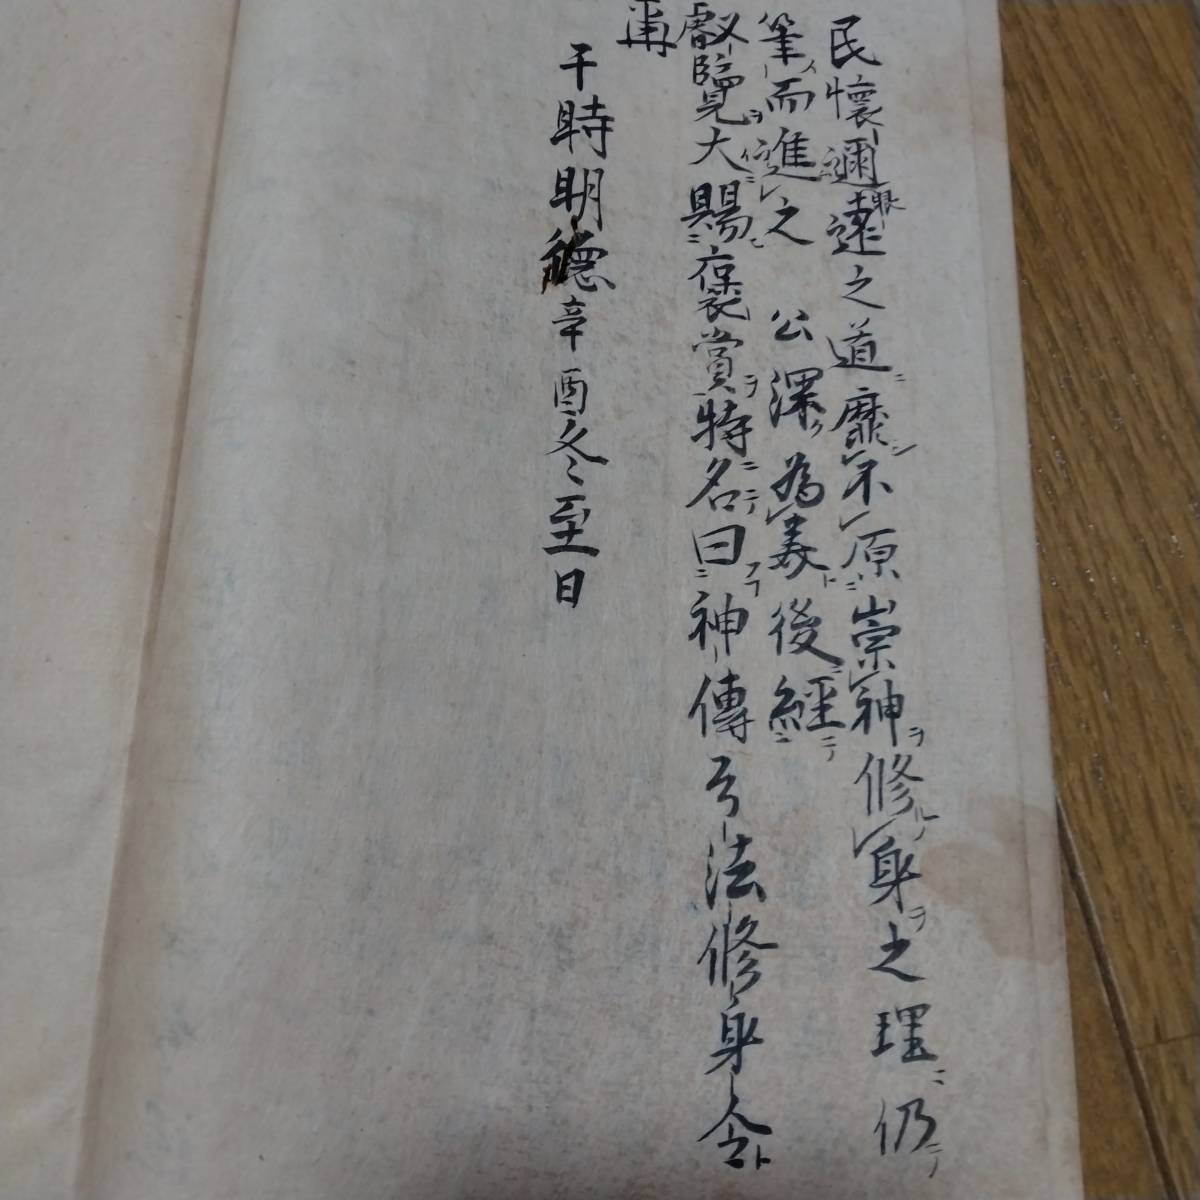 民懷邇遠之道靡不原崇神修身之理仍
筆而進之 公深為美後經
叡覽大賜褒賞特名曰神傳弓法修身令
再
于時明德辛酉冬至日